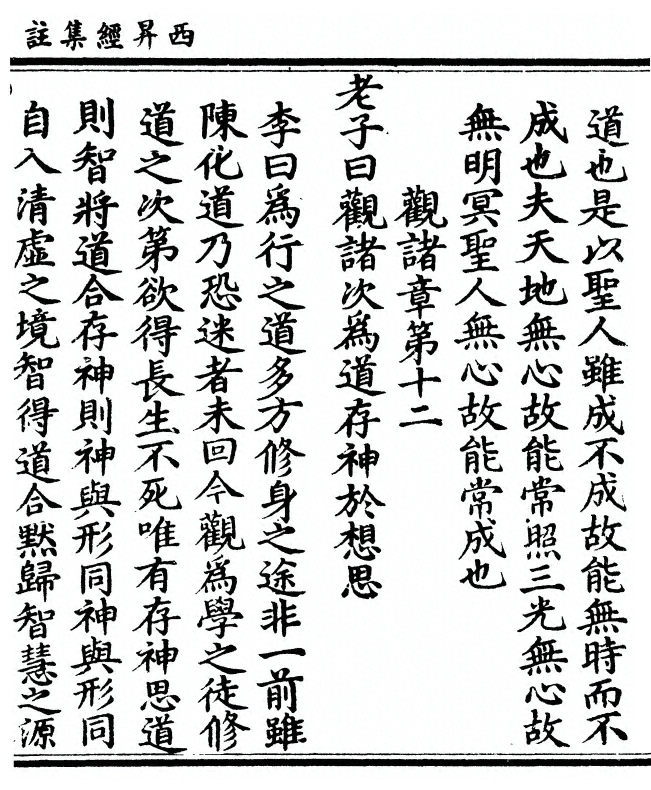 西昇經集註
道也是以聖人雖成不成故能無時而不
成也夫天地無心故能常照三光無心故
無明冥聖人無心故能常成也
觀諸章第十二
老子曰觀諸次為道存神於想思
李曰為行之道多方修身之途非一前雖
陳化道乃恐迷者未回今觀為學之徒修
道之次第欲得長生不死唯有存神思道
則智將道合存神則神與形同神與形同
自入清虛之境智得道合默歸智慧之源